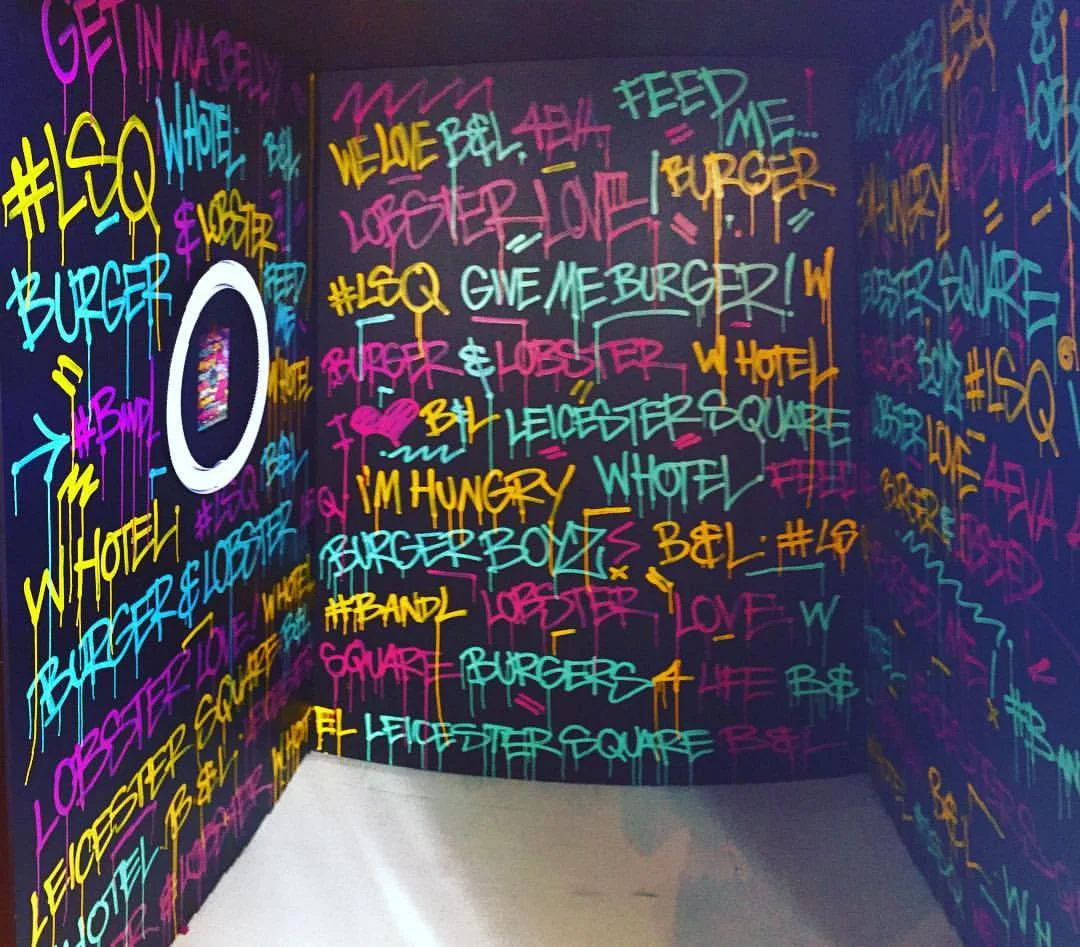 GET IN MA BELLY!
#LSQ
W HOTEL.
B&L
& LOBSTER
BURGER
FEED
ME
#BANDL
W HOTEL
W HOTEL!
#LSQ B&L
BURGER & LOBSTER
LOBSTER LOVE! W HOTEL
LEICESTER SQUARE B&L
B&L.
HOTEL
WE LOVE B&L. 4EVA. FEED ME...
LOBSTER LOVE!! BURGER
#LSQ GIVE ME BURGER! W
BURGER & LOBSTER W HOTEL
I ♥ B&L LEICESTER SQUARE
I'M HUNGRY W HOTEL. FEED
BURGER BOYZ B&L. #LS
#BANDL LOBSTER LOVE W
SQUARE BURGERS 4 LIFE B&
W HOTEL LEICESTER SQUARE B&L
LOBSTER LSQ &
I'M HUNGRY
LEICESTER SQUARE
BURGER BOYZ #LSQ
LOBSTER LOVE 4EVA
BURGER &
#BAN
B&L
W H